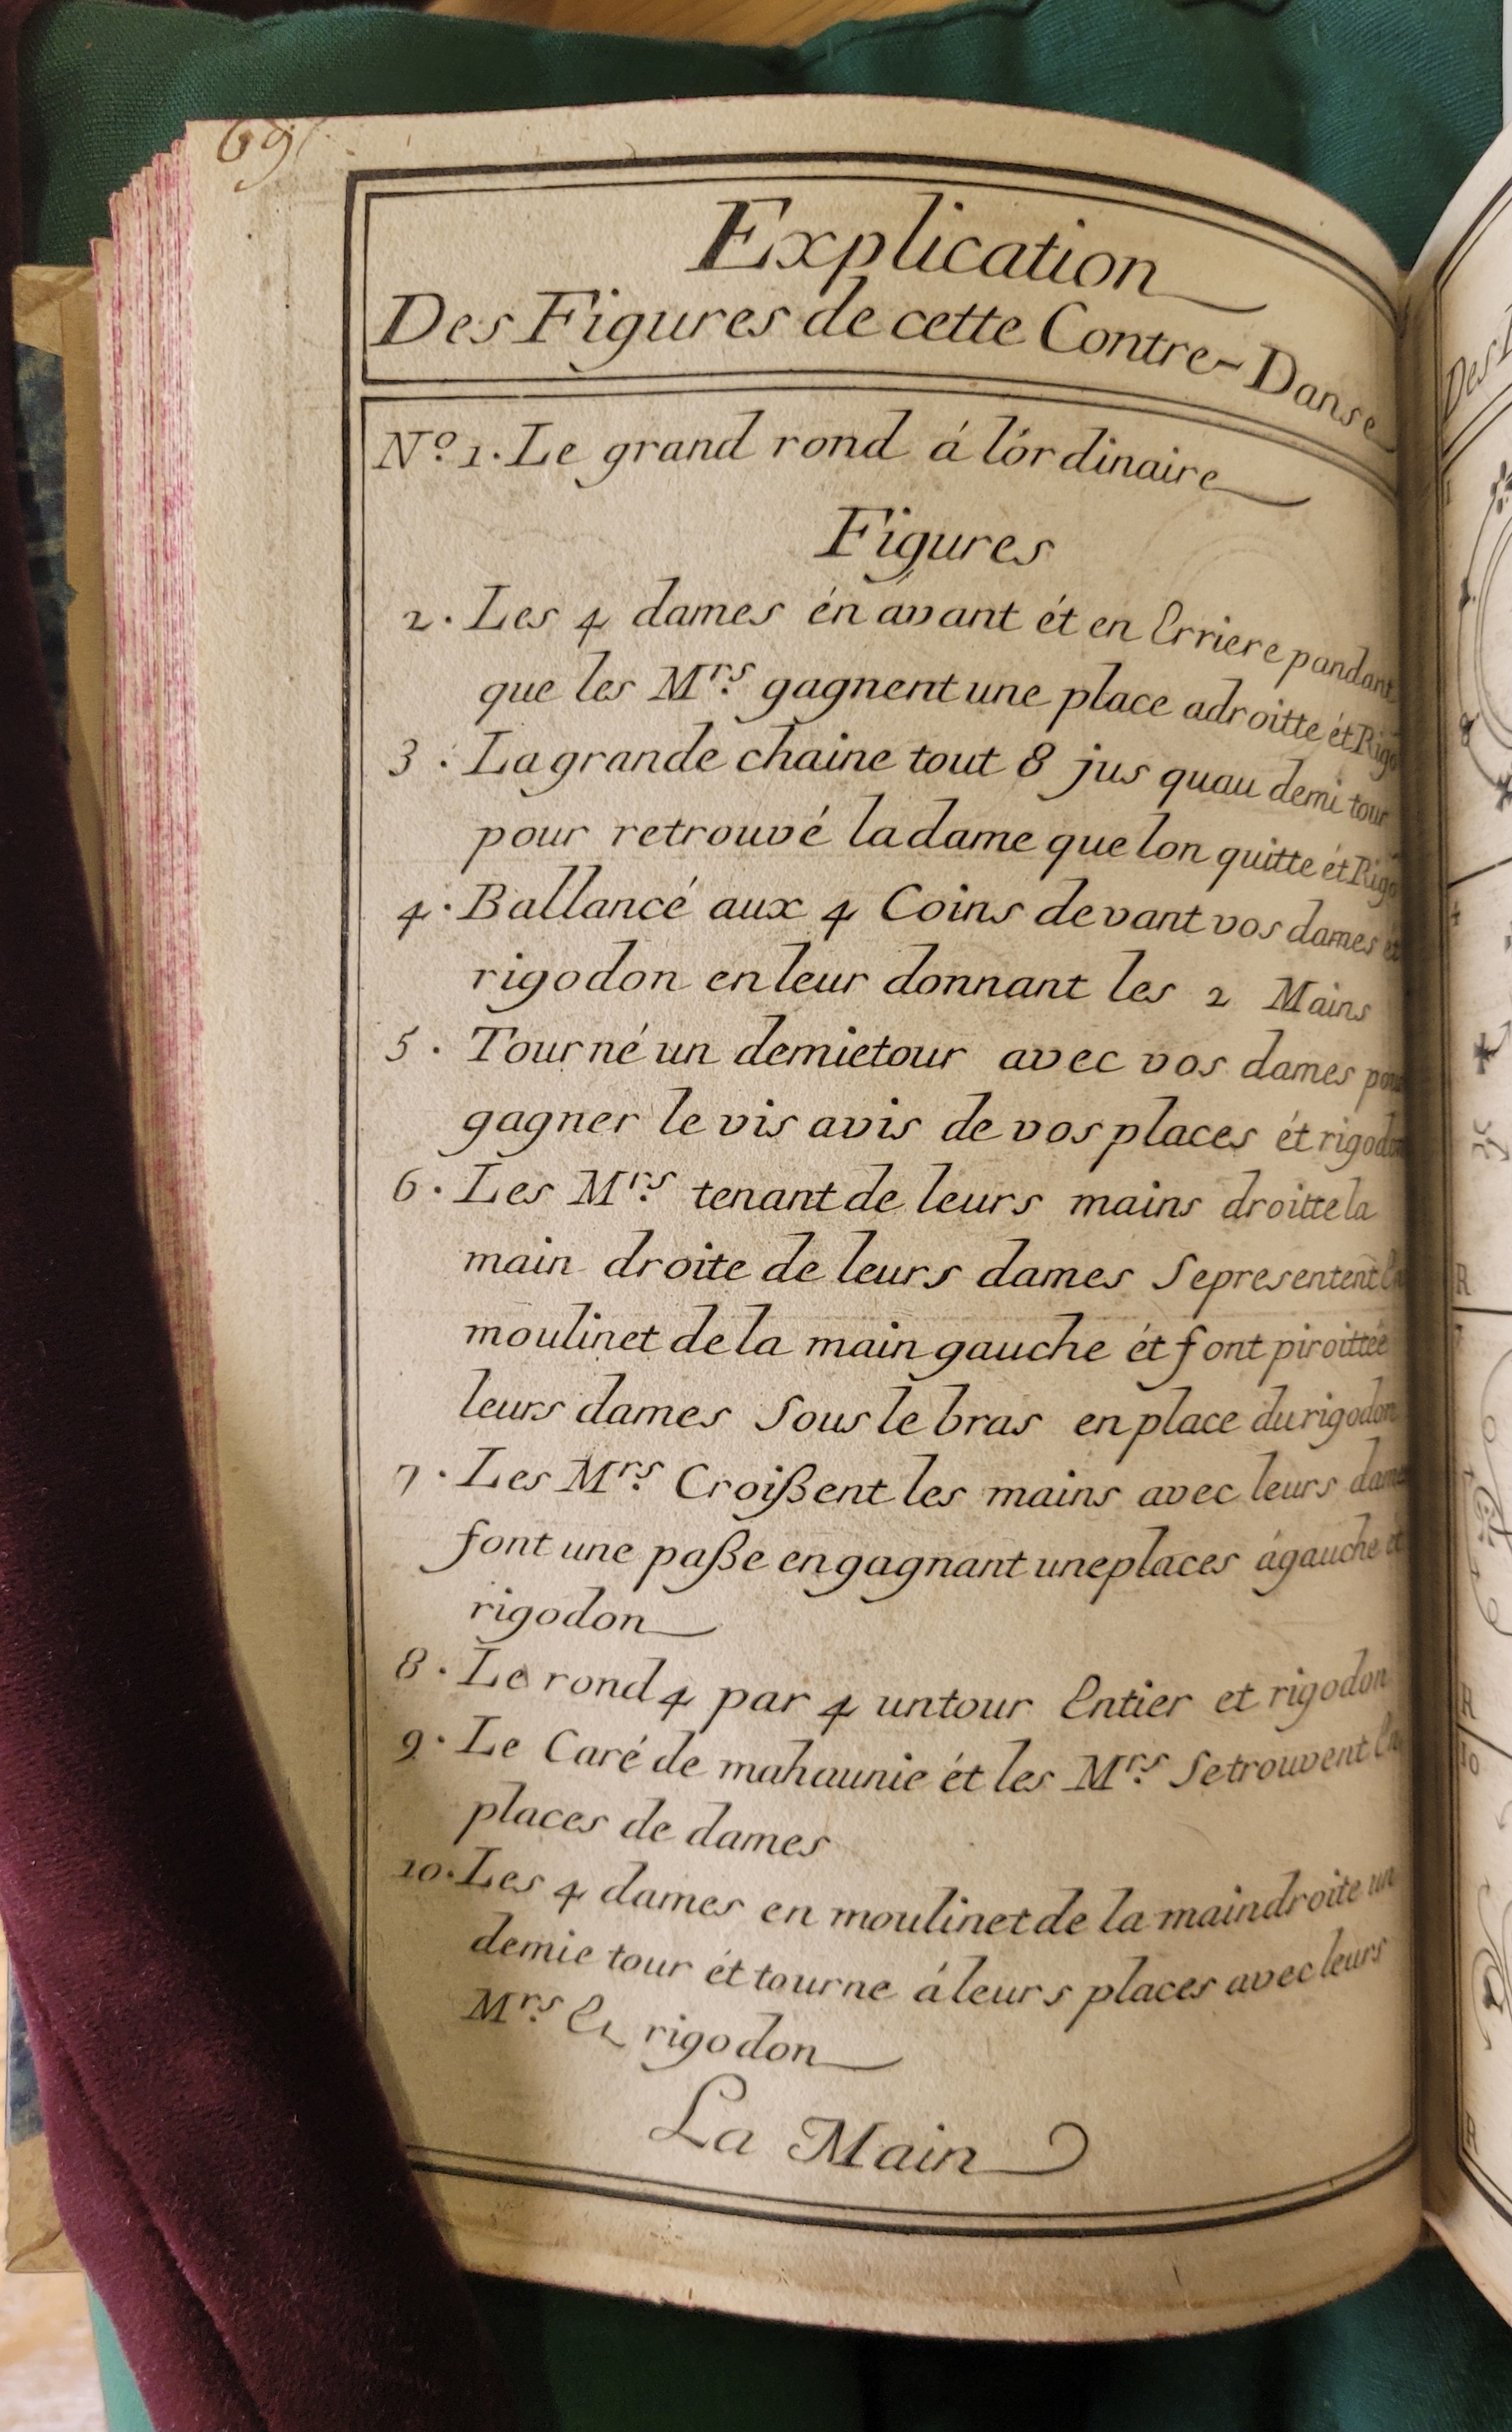 69
Explication
Des Figures de cette Contre-Danse
No. 1. Le grand rond á lórdinaire
Figures
2. Les 4 dames én avant ét en Erriere pandant
que les Mrs. gagnent une place adroitte ét Rigo
3. La grande chaine tout 8 jus quau demi tour
pour retrouvé la dame que lon quitte ét Rigo
4. Ballancé aux 4 Coins devant vos dames et
rigodon en leur donnant les 2 Mains
5. Tourné un demie tour avec vos dames pour
gagner le vis avis de vos places ét rigodon
6. Les Mrs. tenant de leurs mains droitte la
main droite de leurs dames Se presentent En
moulinet de la main gauche ét font piroittée
leurs dames Sous le bras en place du rigodon
7. Les Mrs. Croißent les mains avec leurs dame
font une paße en gagnant une places ágauche et
rigodon
8. Le rond 4 par 4 un tour Entier et rigodon
9. Le Caré de mahaunie ét les Mrs. Se trouvent En
places de dames
10. Les 4 dames en moulinet de la main droite un
demie tour ét tourne á leurs places avec leurs
Mrs. Et rigodon
La Main